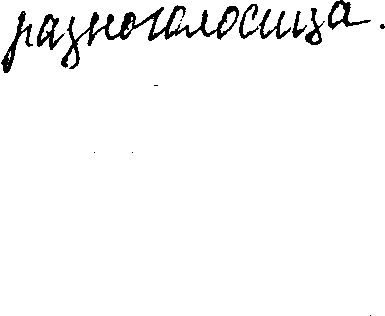 разноголосица.